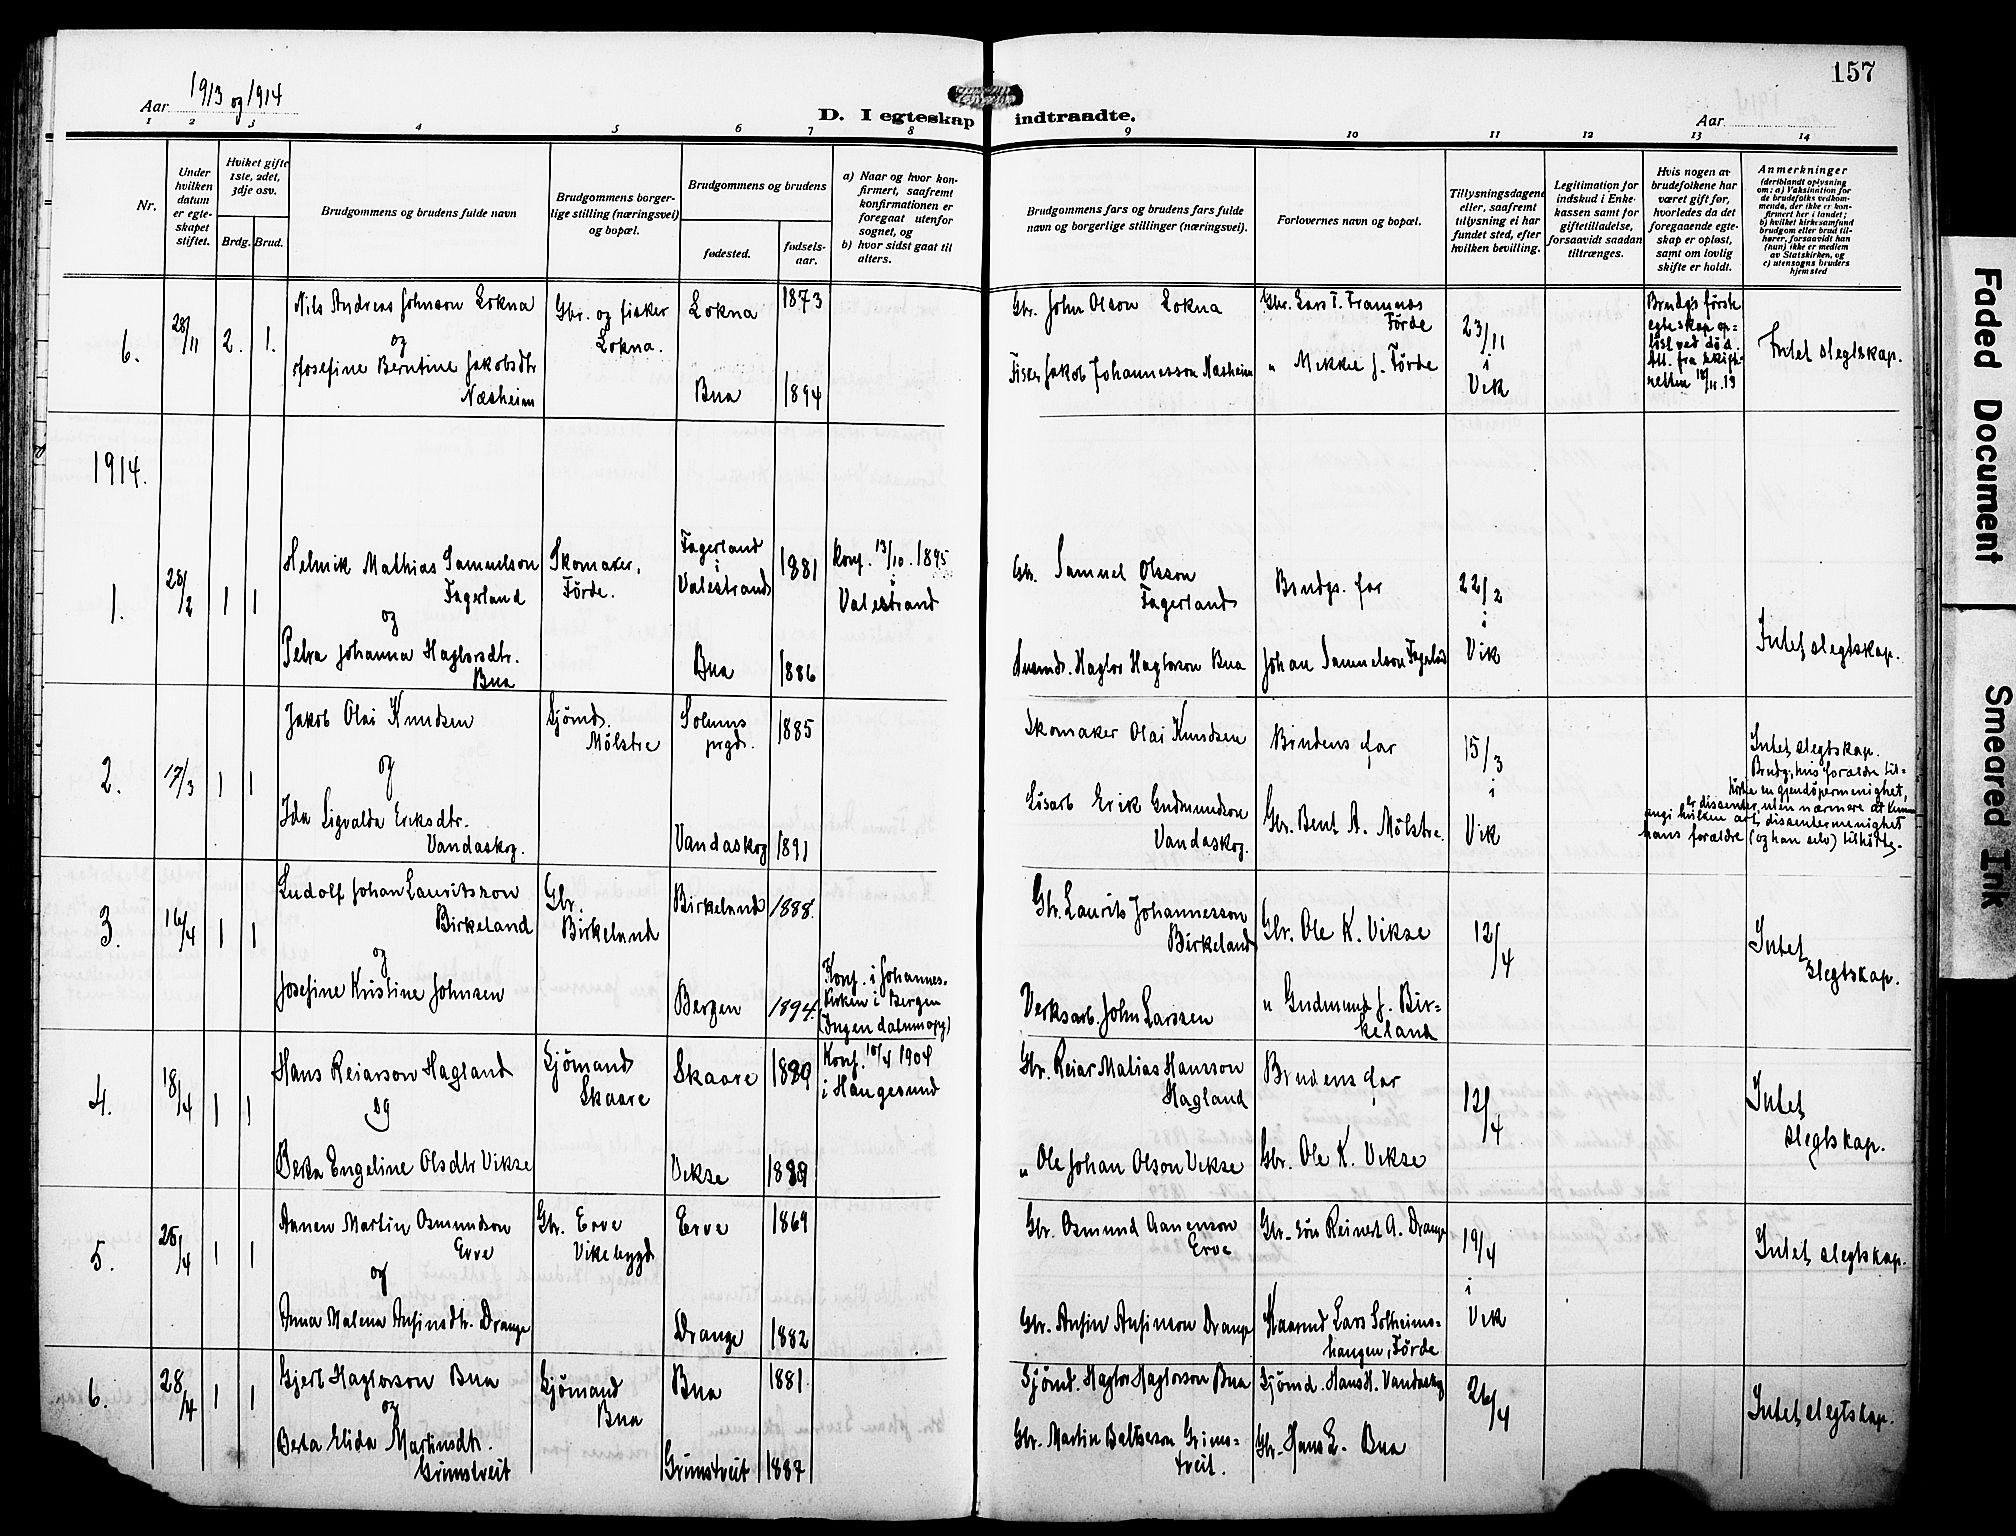 157
Aar 1913 og 1914
D. I egteskap indtraadte.
Aar
1 2 3 4 5 6 7 8 9 10 11 12 13 14
Nr.
Under hvilken datum er egteskapet stiftet.
Hviket gifte 1ste, adet, 3dje osv.
Brdg. Brud.
Brudgommens og brudens fulde navn
Brudgommens borgerlige stilling (næringsvei) og bopæl.
Brudgommens og brudens
fødested.
fødselsaar.
a) Naar og hvor konfirmert, saafremt konfirmationen er foregaat utenfor sognet, og
b) hvor sidst gaat til alters.
Brudgommens fars og brudens fars fulde navn og borgerlige stillinger (næringsvei).
Forlovernes navn og bopæl.
Tillysningsdagene eller, saafremt tillysning ei har fundet sted, efter hvilken bevilling.
Legitimation for indskud i Enkekassen samt for giftetilladelse, forsaavidt saadan tiltrænges.
Hvis nogen av brudefolkene har været gift før, hvorledes da det foregaaende egteskap er opløst, samt om lovlig skifte er holdt.
Anmerkninger
(deriblandt oplysning om: a) Vaksination for de brudefolks vedkommende, der ikke er konfirmert her i landet; b) hvilket kirkesamfund brudgom eller brud tilhører, forsaavidt han (hun) ikke er medlem av Statskirken, og c) utensogns bruders hjemsted
6. 28/11 2. 1.
Nils Andreas Johnson Lokna
og
Josefine Berntine Jakobsdtr
Næsheim
Gbr. og fisker
Lokna.
Lokna 1873
Bua 1894
Gbr. John Olson Lokna
Fisker Jakob Johannesson Næsheim
Gbr. Lars T. Framnes
Førde
" Mekkel J. Førde
23/11
i
Vik
Brudgs første
egteskap op=
løst ved død.
Att. fra skifte-
retten 18/11.13
Intet slegtskap.
1914.
1. 28/2 1 1
Helmik Mathias Samuelson
Fagerland
og
Petra Johanna Haglorsdtr.
Bua
Skomaker,
Førde.
Fagerland
i
Valestrand
1881
Bua 1886
konf. 13/10. 1895
i
Valestrand
Gbr. Samuel Olsson
Fagerland
Husmd. Haglor Haglorson Bua
Brudgs. far
Johan Samuelson Fagerland
22/2
i
Vik
Intet slegtskap.
2. 17/3 1 1
Jakob Olai Knudsen
og
Ida Sigvalda Eriksdtr.
Vandaskog.
Sjømd.
Mølstre
Solums
prgd.
1885
Vandaskog 1891
Skomaker Olai Knudsen
Løsarb Erik Gudmundson
Vandaskog.
Brudens far
Gbr. Bent A. Mølstre.
15/3
i
Vik
Intet slegtskap.
Brudg., hvis forældre til=
hørte en gjendøpermenighet,
er dissenter, uten nærmere at kunne
angi hvilken art dissentermenighet
hans forældre (og han selv) tilhørte.
3. 16/4 1 1
Ludolf Johan Lauritsson
Birkeland
og
Josefine Kristine Johnsen
Gbr.
Birkeland
Birkeland 1888.
Bergen 1894.
Konf. i Johannes-
kirken i Bergen
(Ingen datumopg)
Gbr. Laurits Johannesson
Birkeland
Verksarb. John Larssen
Gbr. Ole K. Vikse
" Gudmund J. Bir=
keland
12/4
Intet
slegtskap.
4. 18/4 1 1
Hans Reiarson Hagland
og
Berta Engeline Olsdtr Vikse
Sjømand
Skaare
Skaare 1889
Vikse 1889
Konf. 10/4 1904
i Haugesund
Gbr. Reiar Matias Hansson
Hagland
" Ole Johan Olson Vikse
Brudens far
Gbr. Ole K. Vikse
12/4
Intet
slegtskap.
5. 25/4 1 1
Aanen Martin Osmundson
Erve
og
Anna Malena Anfinsdtr. Drange
Gbr. Erve
Vikebygd
Erve 1869
Drange 1882
Gbr. Osmund Aanenson
Erve
Gbr. Anfin Anfinson Drange
Gbr.-søn Reinert A. Drange
Kaarmd Lars Solheims-
haugen, Førde
19/4
i
Vik
Intet slegtskap.
6. 28/4 1 1
Gjert Haglorson Bua
og
Berta Elida Martinsdtr.
Grimstveit
Sjømand
Bua
Bua 1881
Grimstveit 1887
Sjømd. Haglor Haglorson Bua
Gbr. Martin Baltserson Grims=
tveit.
Sjømd. Hans H. Vandaskog
Gbr. Hans L. Bua
26/4
Intet slegtskap.
Faded Document
Smeared Ink